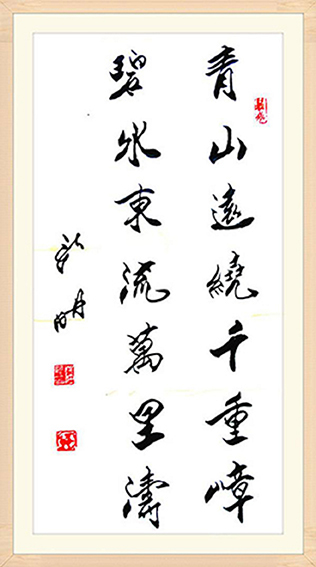 青山遠繞千重嶂
碧水東流萬里濤
明